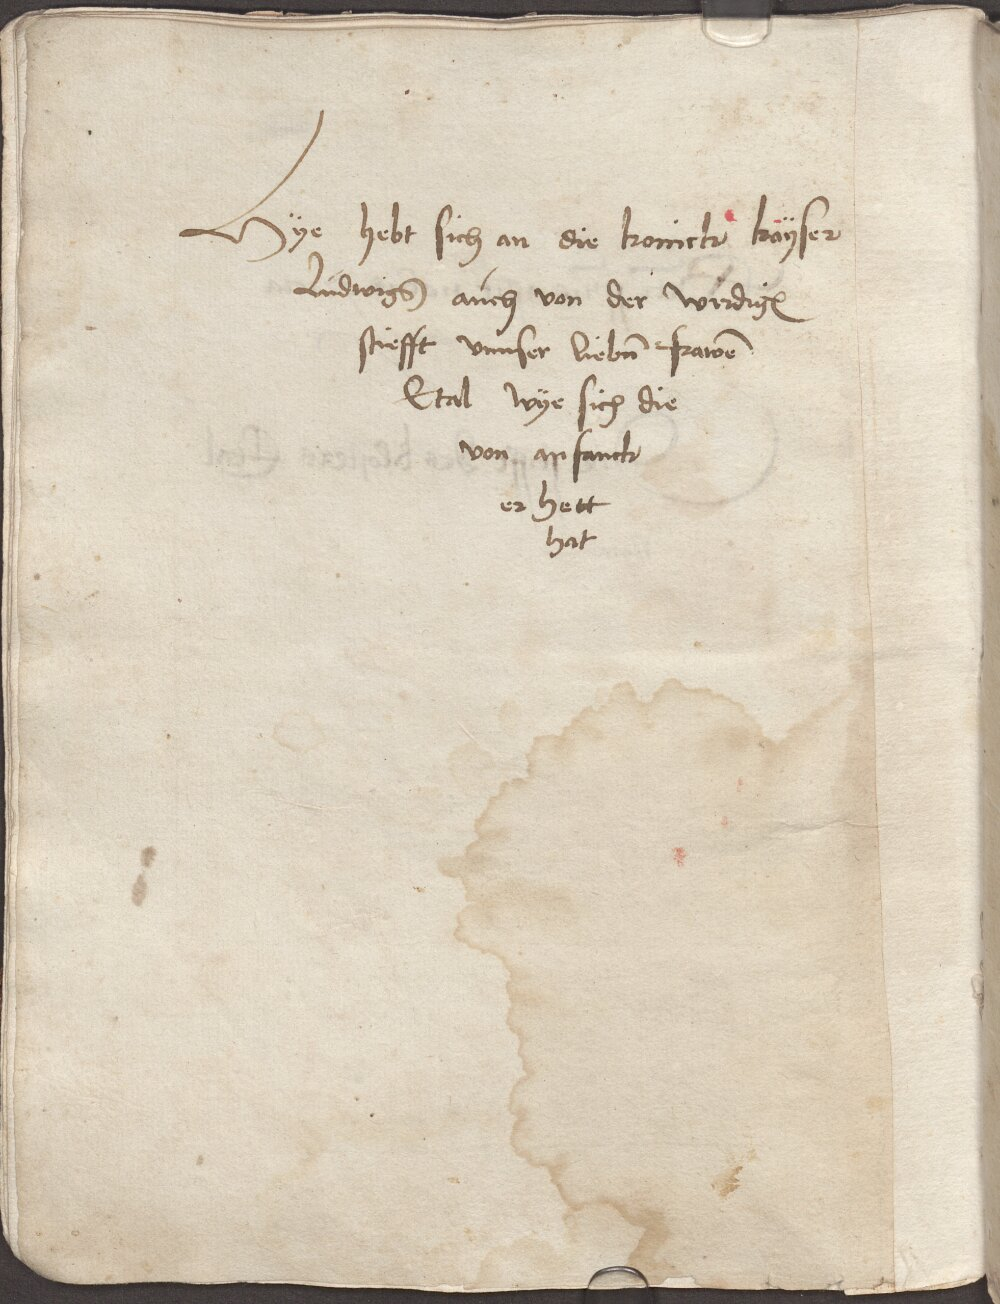 Hÿe hebt sich an die kronick kaÿser
Ludwigs auch von der wirdigē
stiefft vnnser liebñ frawē
Etal wÿe sich die
von anfanck
er hett
hat